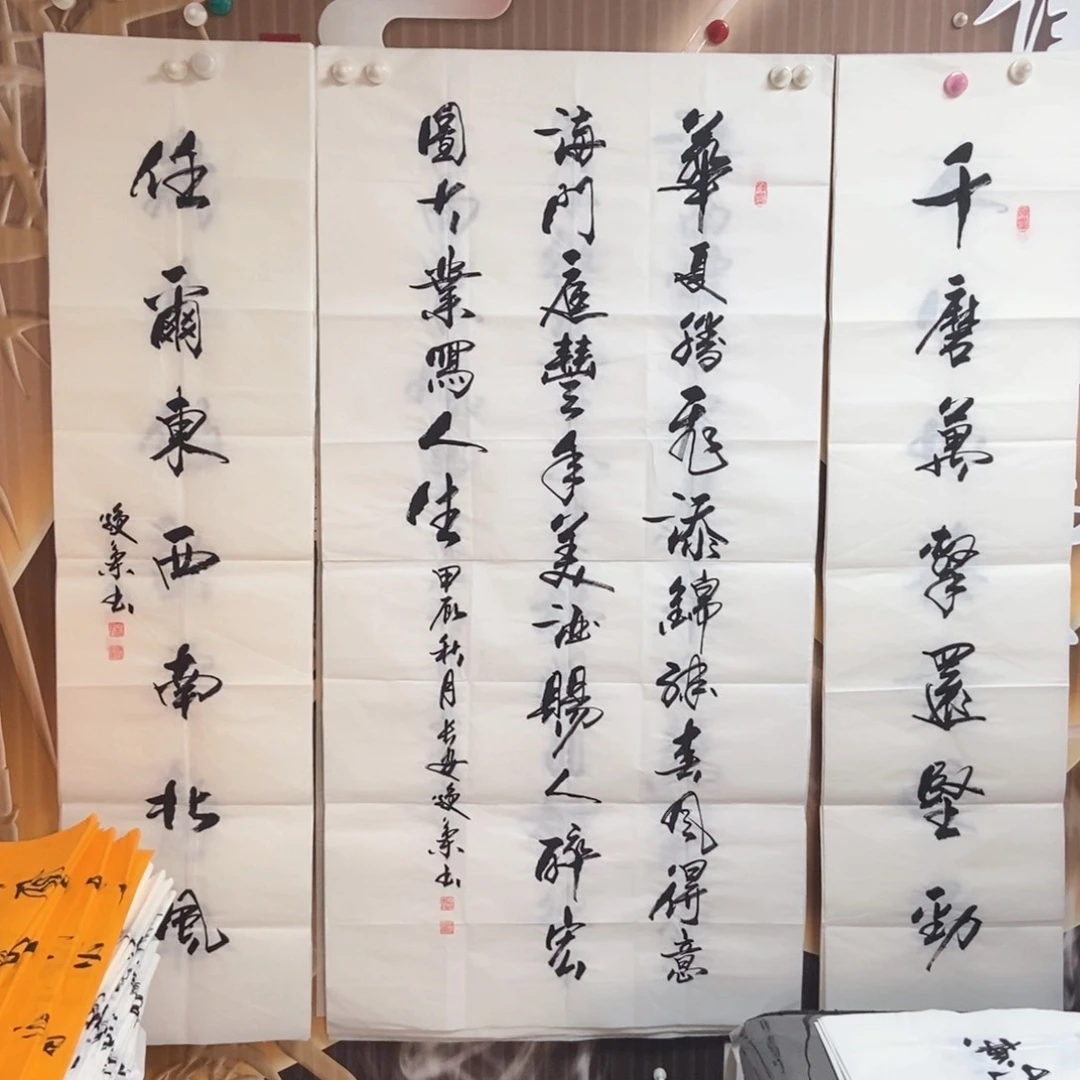 千磨萬擊還堅勁
華夏騰飛添錦繡春風得意
滿門庭豐年美酒賜人醉宏
圖大業寫人生甲辰秋月長安煥書
任爾東西南北風
煥書